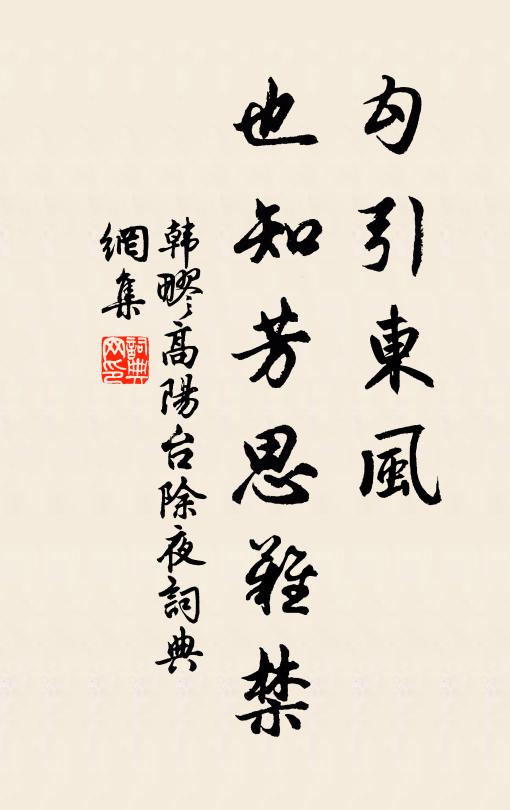 勾引東風
也知芳思難禁
韩疁高陽台除夜詞典
網集
詞典網印